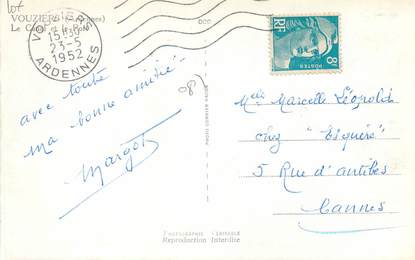 lot
VOUZIERS
VOUZIERS
15H30
23-5
1952
ARDENNES
DCP
RF
8F
POSTES
08
avec toute
ma bonne amitié
Margot
Melle Marcelle Léopold
chez "Esquire"
5 Rue d'antibes
Cannes
PHOTOGRAPHIE VÉRITABLE
Reproduction Interdite